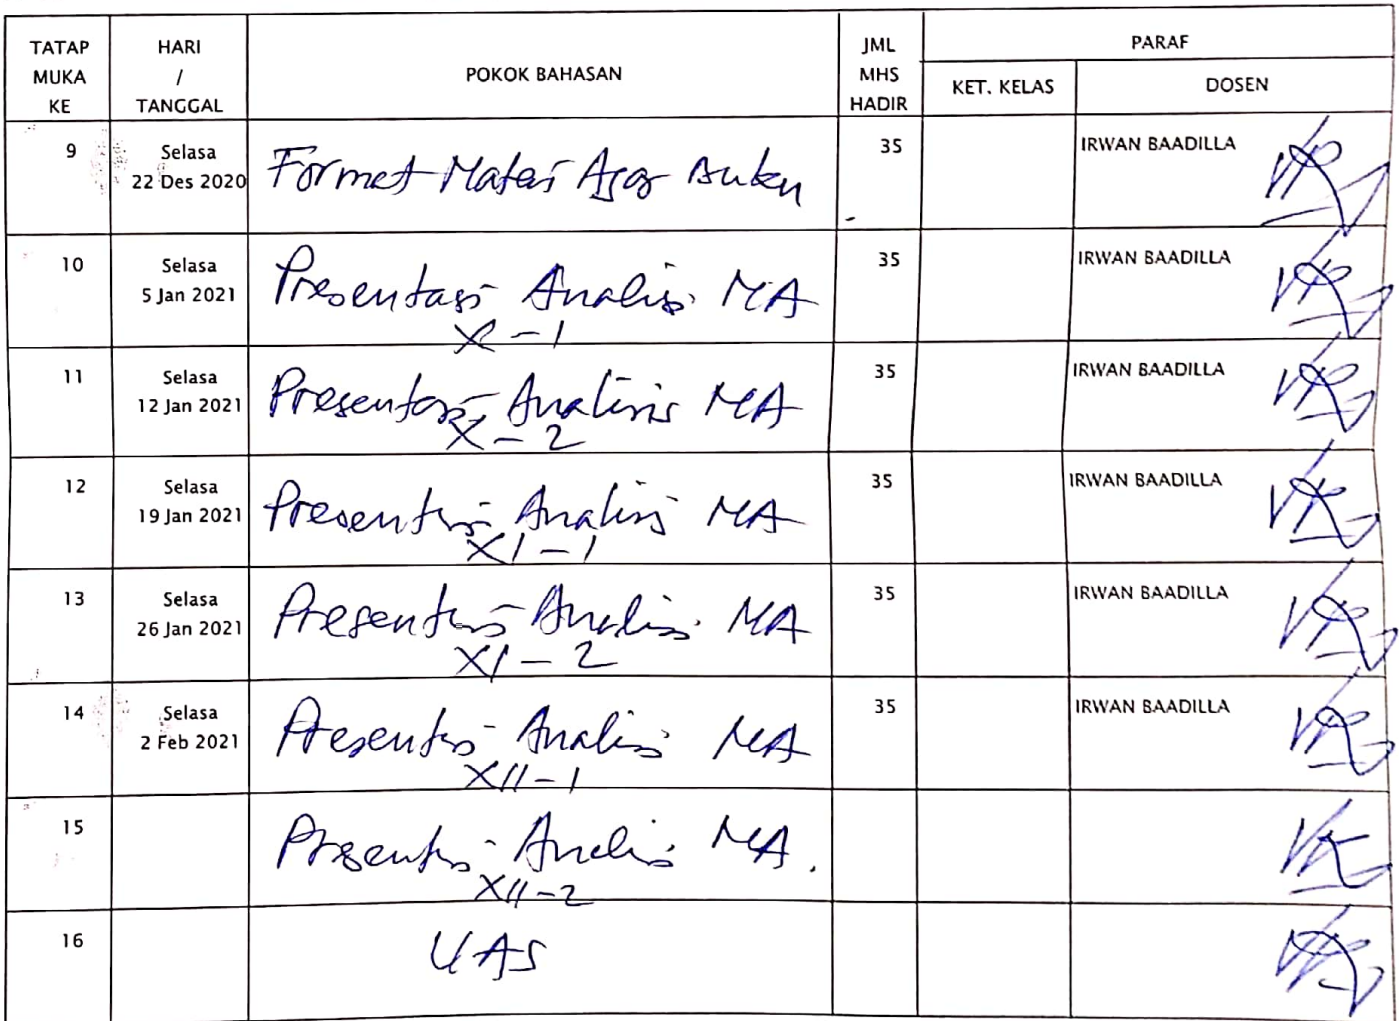 TATAP MUKA KE
HARI / TANGGAL
POKOK BAHASAN
JML MHS HADIR
PARAF
KET. KELAS
DOSEN
9
Selasa
22 Des 2020
Format Materi Ajar Buku
35
IRWAN BAADILLA
10
Selasa
5 Jan 2021
Presentasi Analisis MA
X - 1
35
IRWAN BAADILLA
11
Selasa
12 Jan 2021
Presentasi Analisis MA
X - 2
35
IRWAN BAADILLA
12
Selasa
19 Jan 2021
Presentasi Analisis MA
XI - 1
35
IRWAN BAADILLA
13
Selasa
26 Jan 2021
Presentasi Analisis MA
XI - 2
35
IRWAN BAADILLA
14
Selasa
2 Feb 2021
Presentasi Analisis MA
XII - 1
35
IRWAN BAADILLA
15
Presentasi Analisis MA.
XII - 2
16
UAS